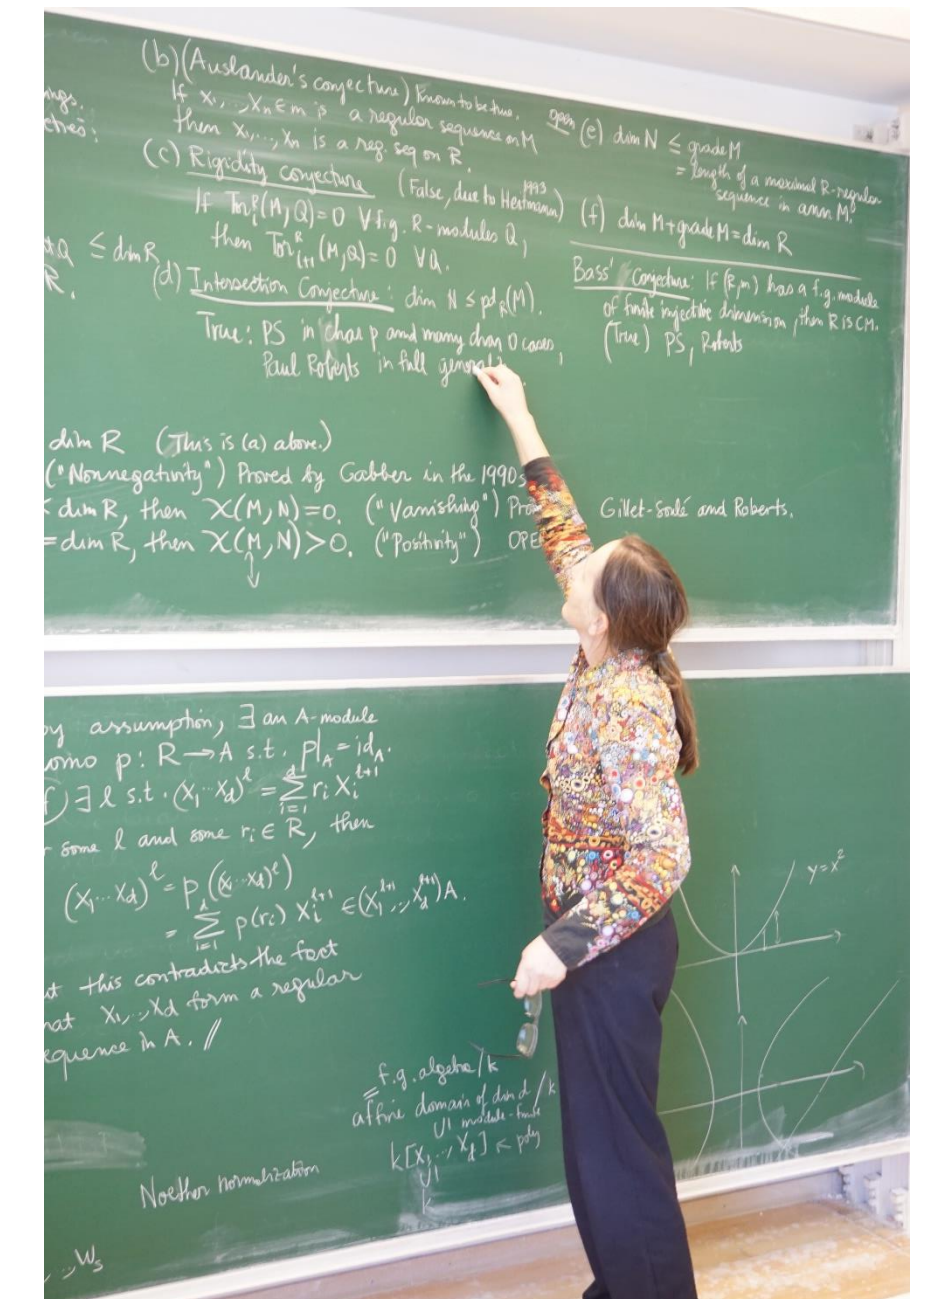 ings.
etries:
Q ≤ dim R
R.
(b) (Auslander's conjecture) Known to be true.
If x₁, .., xₙ ∈ m is a regular sequence on M
then x₁, ..., xₙ is a reg. seq on R.
(c) Rigidity conjecture (False, due to Heitmann) 1993
If Torᵢᴿ(M, Q) = 0 ∀ f.g. R-modules Q,
then Torᵢ₊₁ᴿ(M, Q) = 0 ∀ Q.
(d) Intersection Conjecture: dim N ≤ pd_R(M).
True: PS in char p and many char 0 cases,
Paul Roberts in full general
open (e) dim N ≤ grade M
= length of a maximal R-regular
sequence in ann M.
(f) dim M + grade M = dim R
Bass' Conjecture: If (R, m) has a f.g. module
of finite injective dimension, then R is CM.
(True) PS, Roberts
dim R (This is (a) above.)
("Nonnegativity") Proved by Gabber in the 1990s
< dim R, then χ(M, N) = 0. ("Vanishing") Pro Gillet-Soulé and Roberts.
= dim R, then χ(M, N) > 0. ("Positivity") OPE
by assumption, ∃ an A-module
omo p: R → A s.t. p|_A = id_A.
f) ∃ l s.t. (x₁ ⋯ x_d)^l = Σ_{i=1}^d rᵢ xᵢ^{l+1}
r some l and some rᵢ ∈ R, then
(x₁ ⋯ x_d)^l = p((x₁ ⋯ x_d)^l)
= Σ_{i=1}^d p(rᵢ) xᵢ^{l+1} ∈ (x₁^{l+1}, .., x_d^{l+1})A.
t this contradicts the fact
hat x₁, .., x_d form a regular
equence in A. //
f.g. algebra/k
affine domain of dim d /k
U| module-finite
k[x₁, .., x_d] ← poly
U|
k
Noether normalization
.., W_s
y = x²